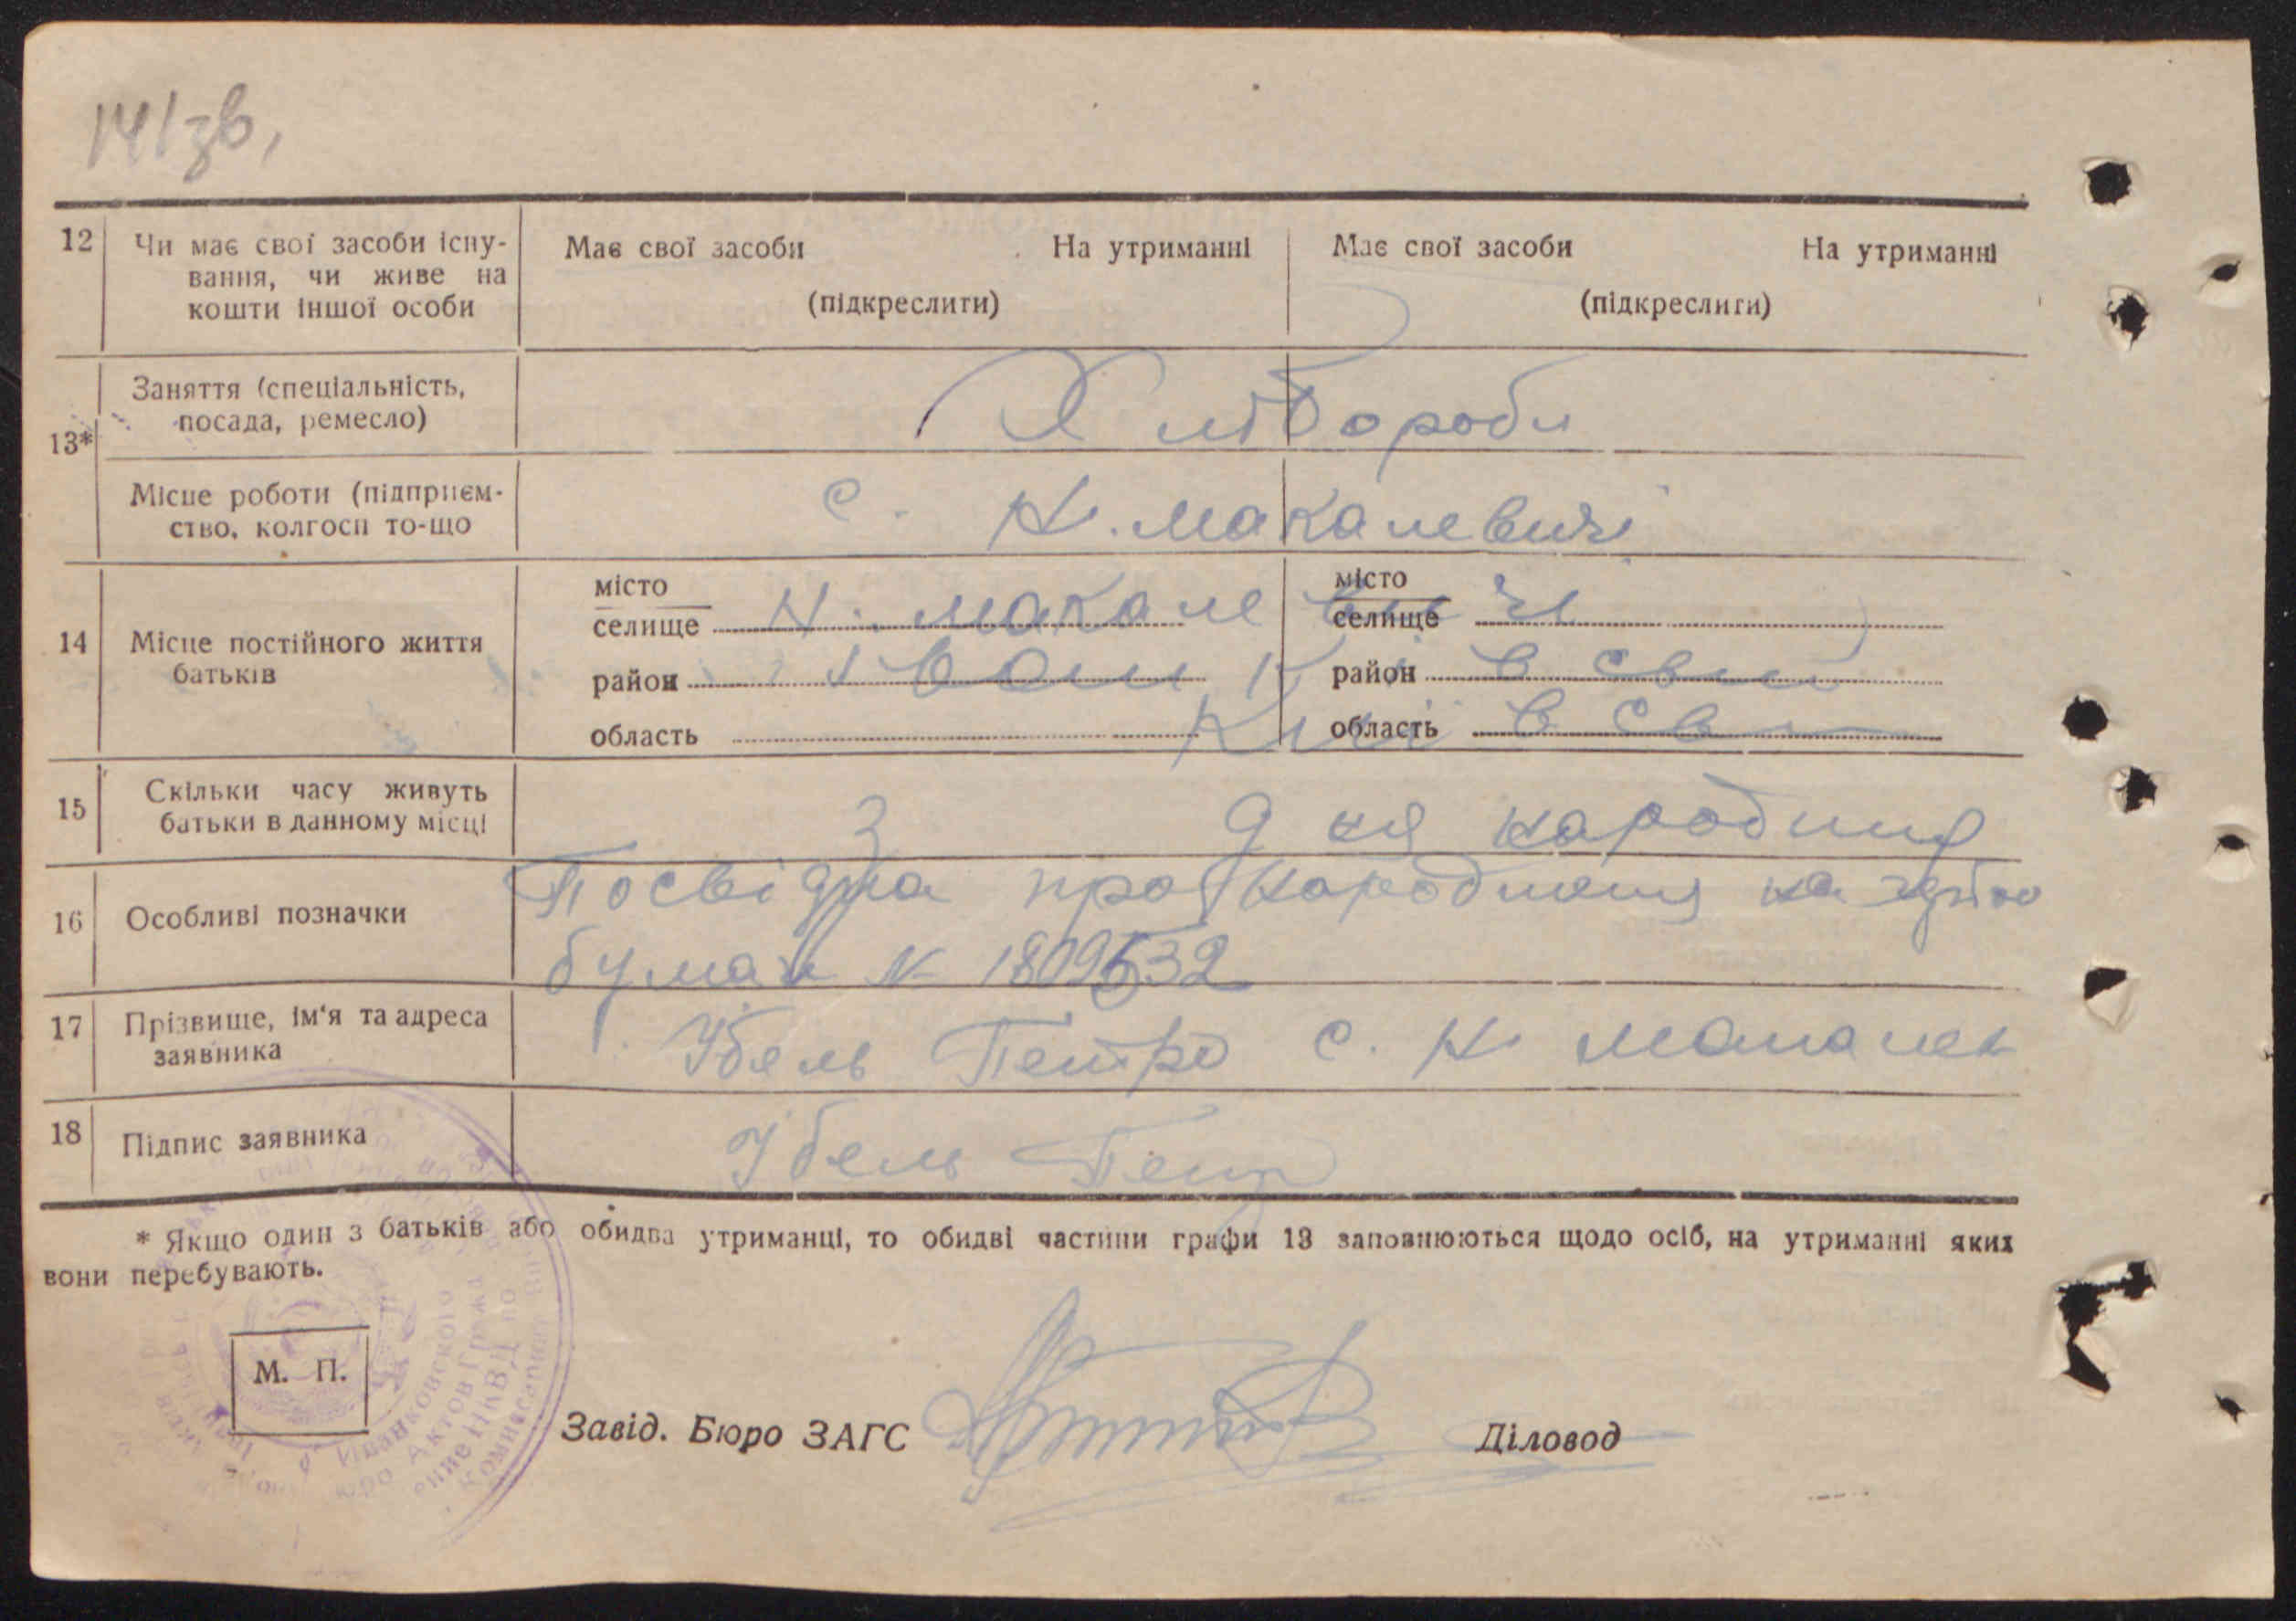 141зв,
12 Чи має свої засоби існу-
вання, чи живе на
кошти іншої особи
Має свої засоби На утриманні
(підкреслити)
Має свої засоби На утриманні
(підкреслити)
13*
Заняття (спеціальність,
посада, ремесло)
Хлібороби
Місце роботи (підприєм-
ство, колгосп то-що
с. Н. Макалевичі
14 Місце постійного життя
батьків
місто
селище Н. Макалевичі
район Іванківськ
область Київськ
місто
селище
район
область
15 Скільки часу живуть
батьки в данному місці
З дня народиня
16 Особливі позначки
Посвідка про народження на
бумазі № 1809532
17 Прізвище, ім'я та адреса
заявника
Убель Петро с. Н
18 Підпис заявника
Убель Петр
* Якщо один з батьків або обидва утриманці, то обидві частини графи 13 заповнюються щодо осіб, на утриманні яких
вони перебувають.
М. П.
Завід. Бюро ЗАГС
Діловод